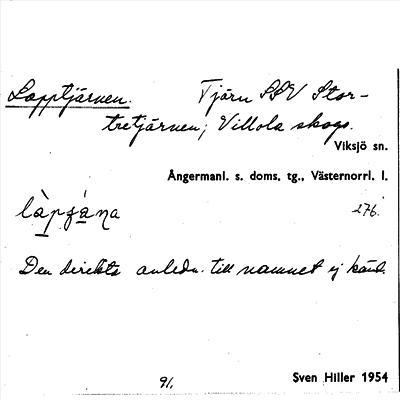 Lapptjärnen. Tjärn SSV Stor-
tretjärnen; Villola skogs.
Viksjö sn.
Ångermanl. s. doms. tg., Västernorrl. l.
276.
Den direkta anledn. till namnet ej känd.
91.
Sven Hiller 1954